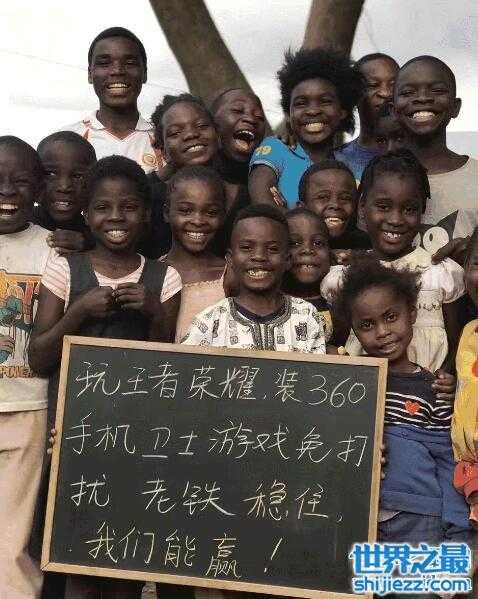 玩王者荣耀,装360
手机卫士游戏免打
扰 老铁 稳住,
我们能赢!
世界之最
shijiezz.com